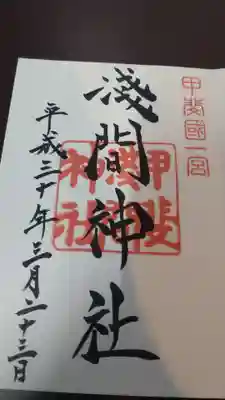 甲斐國一宮
淺間神社
平成三十年三月二十三日